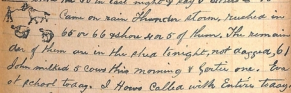 in last night
Came on rain Thunder storm, rushed in
65 or 66 5 of them. The remain
der of them are in the shed tonight, not bagged, 61
John milked 5 cows this morning & Gertie one. Eva
at school today. I Hows Called with Entire today.